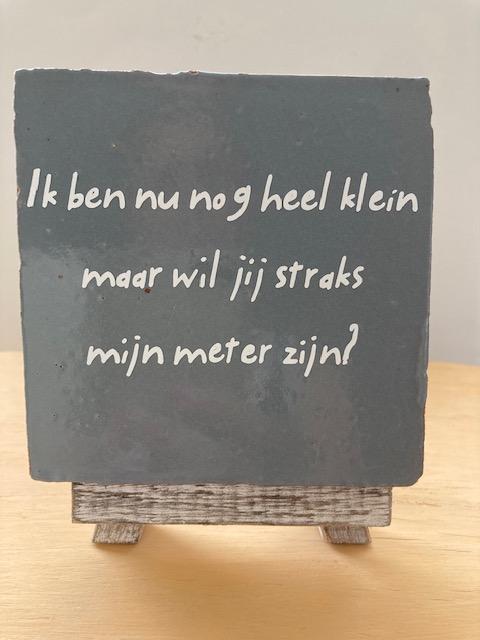 Ik ben nu nog heel klein
maar wil jij straks
mijn meter zijn?